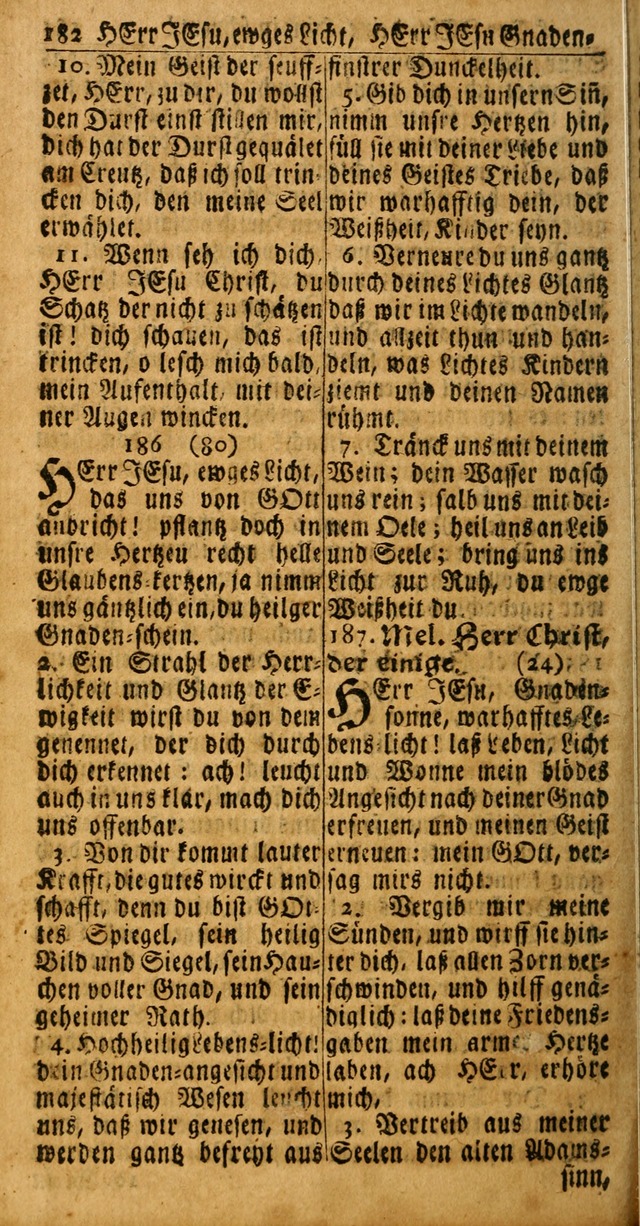 182 HErr JEsu, ewges Licht, HErr JEsu Gnaden-
10. Mein Geist der seuff-
zet, HErr, zu dir, du wollst
den Durst einst stillen mir,
dich hat der Durst gequälet
am Creutz, daß ich soll trin-
cken dich, den meine Seel
erwählet.
11. Wenn seh ich dich,
HErr JEsu Christ, du
Schatz der nicht zu schätzen
ist! dich schauen, das ist
trincken, o lesch mich bald,
mein Aufenthalt, mit dei-
ner Augen wincken.
186 (80)
HErr JEsu, ewges Licht,
das uns von GOtt
anbricht! pflantz doch in
unsre Hertzen recht helle
Glaubens-kertzen, ja nimm
uns gäntzlich ein, du heilger
Gnaden-schein.
2. Ein Strahl der Herr-
lichkeit und Glantz der E-
wigkeit wirst du von dem
genennet, der dich durch
dich erkennet: ach! leucht
auch in uns klar, mach dich
uns offenbar.
3. Von dir kommt lauter
Krafft, die gutes wirckt und
schafft, denn du bist GOt-
tes Spiegel, sein heilig
Bild und Siegel, sein Hau-
chen voller Gnad, und sein
geheimer Rath.
4. Hochheilig Lebens-licht!
dein Gnaden-angesicht und
majestätisch Wesen leucht
uns, daß wir genesen, und
werden gantz befreyt aus
finstrer Dunckelheit.
5. Gib dich in unsern Siñ,
nimm unsre Hertzen hin,
füll sie mit deiner Liebe und
deines Geistes Triebe, daß
wir warhafftig dein, der
Weißheit, Kinder seyn.
6. Verneure du uns gantz
durch deines Lichtes Glantz
daß wir im Lichte wandeln,
und allzeit thun und han-
deln, was Lichtes Kindern
ziemt und deinen Namen
rühmt.
7. Tränck uns mit deinem
Wein; dein Wasser wasch
uns rein; salb uns mit dei-
nem Oele; heil uns an Leib
und Seele; bring uns ins
Licht zur Ruh, du ewge
Weißheit du.
187. Mel. Herr Christ,
der einige. (24)
HErr JEsu, Gnaden-
sonne, warhafftes Le-
bens-licht! laß Leben, Licht
und Wonne mein blödes
Angesicht nach deiner Gnad
erfreuen, und meinen Geist
erneuen: mein GOtt, ver-
sag mirs nicht.
2. Vergib mir meine
Sünden, und wirff sie hin-
ter dich, laß allen Zorn ver-
schwinden, und hilff genä-
diglich: laß deine Friedens-
gaben mein arme Hertze
laben, ach HErr, erhöre
mich,
3. Vertreib aus meiner
Seelen den alten Adams-
sinn,